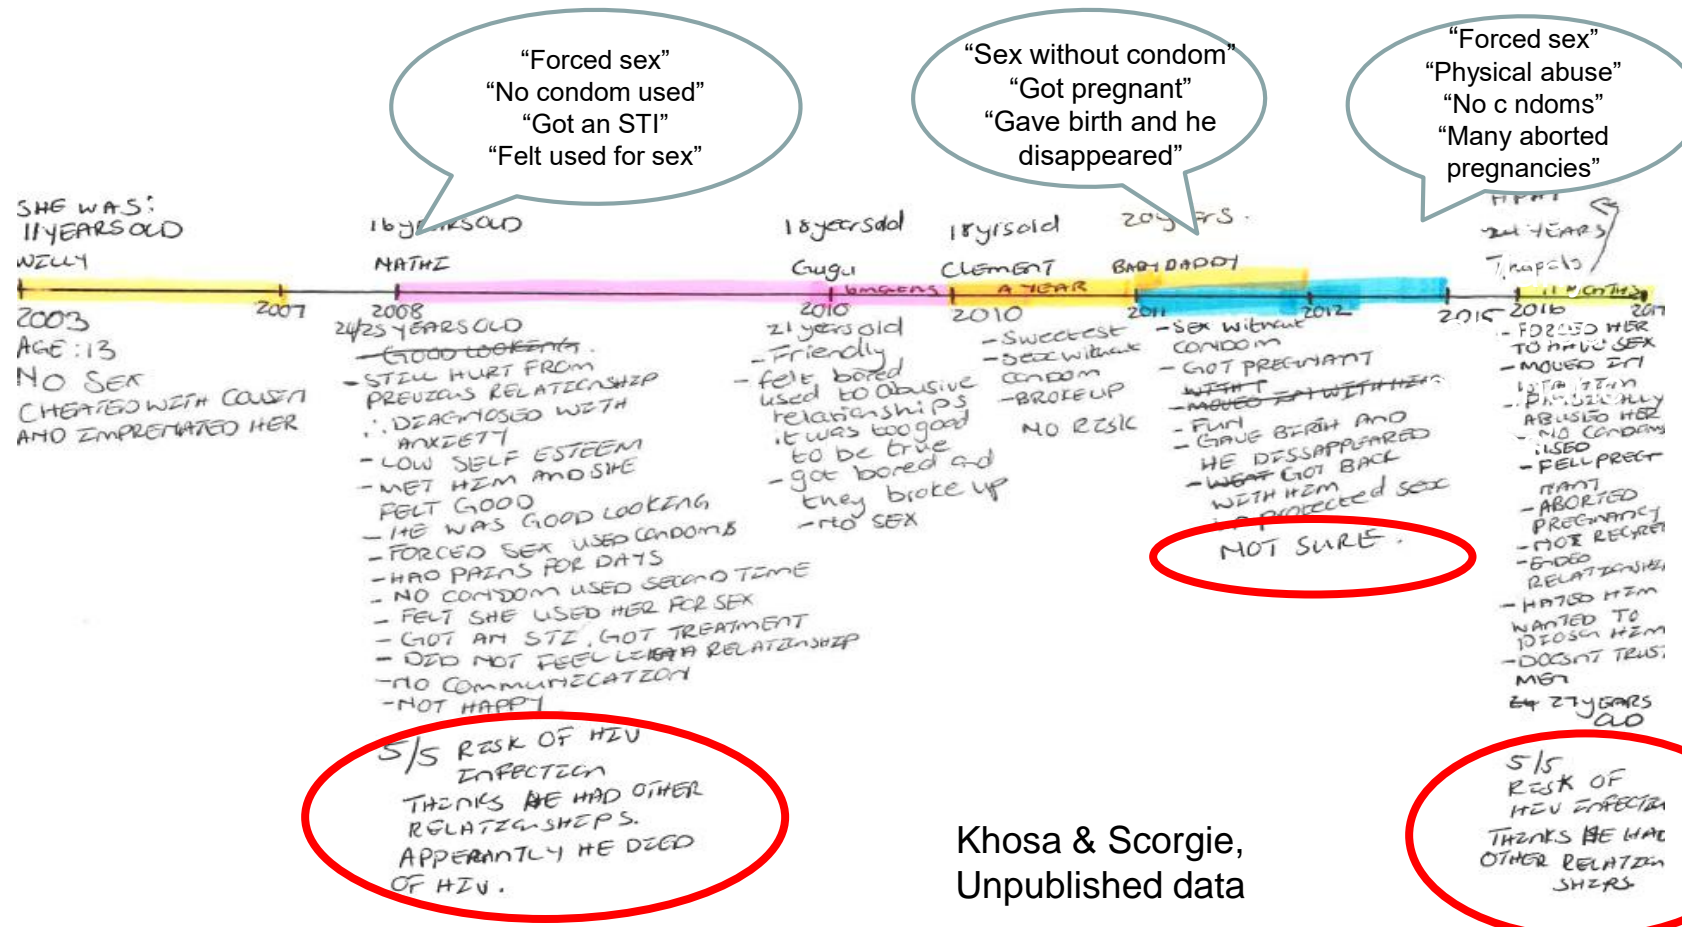 “Forced sex”
“No condom used”
“Got an STI”
“Felt used for sex”
“Sex without condom”
“Got pregnant”
“Gave birth and he
disappeared”
“Forced sex”
“Physical abuse”
“No c ndoms”
“Many aborted
pregnancies”
SHE WAS:
11 YEARS OLD
WILLY
2003
2007
AGE: 13
NO SEX
CHEATED WITH COUSIN
AND IMPREMATED HER
16 YEARS OLD
NATHI
2008
24/25 YEARS OLD
- GOOD LOOKING.
- STILL HURT FROM
PREVIOUS RELATIONSHIP
∴ DIAGNOSED WITH
ANXIETY
- LOW SELF ESTEEM
- MET HIM AND SHE
FELT GOOD
- HE WAS GOOD LOOKING
- FORCED SEX USED CONDOMS
- HAD PAINS FOR DAYS
- NO CONDOM USED SECOND TIME
- FELT SHE USED HER FOR SEX
- GOT AN STI, GOT TREATMENT
- DID NOT FEEL LIKE A RELATIONSHIP
- NO COMMUNICATION
- NOT HAPPY
5/5 RISK OF HIV
INFECTION
THINKS HE HAD OTHER
RELATIONSHIPS.
APPERANTLY HE DIED
OF HIV.
18 years old
Gugu
6 months
2010
21 years old
- Friendly
- felt bored
used to abusive
relationships
it was too good
to be true
- got bored and
they broke up
- NO SEX
18 yrs old
CLEMENT
A YEAR
2010
- Sweetest
- Sex without
condom
- BROKE UP
NO RISK
20 years.
BABY DADDY
2011
2012
2015
- SEX without
CONDOM
- GOT PREGNANT
- MOVED IN WITH HIM
- FUN
- GAVE BIRTH AND
HE DISSAPPEARED
- WENT GOT BACK
WITH HIM
protected sex
NOT SURE.
24 YEARS
11 MONTHS
2016
- FORCED HER
TO HAVE SEX
- MOVED IN
WITH HIM
- PHYSICALLY
ABUSED HER
- NO CONDOMS
USED
- FELL PREG
NANT
- ABORTED
PREGNANCY
- NOT REGRET
- ENDED
RELATIONSHIP
- HATED HIM
WANTED TO
HIM
- DOESNT TRUST
MEN
24 27 YEARS
OLD
5/5
RISK OF
HIV INFECTION
THINKS HE HAD
OTHER RELATION
SHIPS
Khosa & Scorgie,
Unpublished data